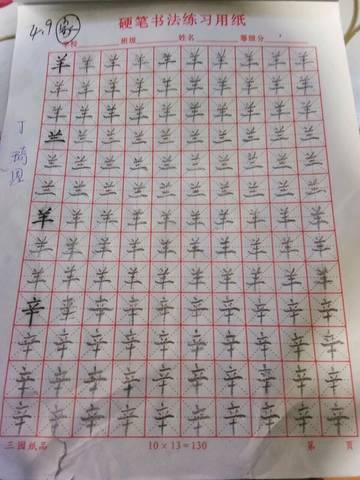 4.9
硬笔书法练习用纸
学校 班级 姓名 等级分
丁
羊羊羊羊羊羊羊羊羊羊
羊羊羊羊羊羊羊羊羊羊
羊羊羊羊羊羊羊羊羊羊
兰兰兰兰兰兰兰兰兰兰
兰兰兰兰兰兰兰兰兰兰
兰兰兰兰兰兰兰兰兰兰
羊羊羊羊羊羊羊羊羊羊
羊羊羊羊羊羊羊羊羊羊
羊羊羊羊羊羊羊羊羊羊
辛辛辛辛辛辛辛辛辛辛
辛辛辛辛辛辛辛辛辛辛
辛辛辛辛辛辛辛辛辛辛
辛辛辛辛辛辛辛辛辛辛
三园纸品 10×13=130 第 页